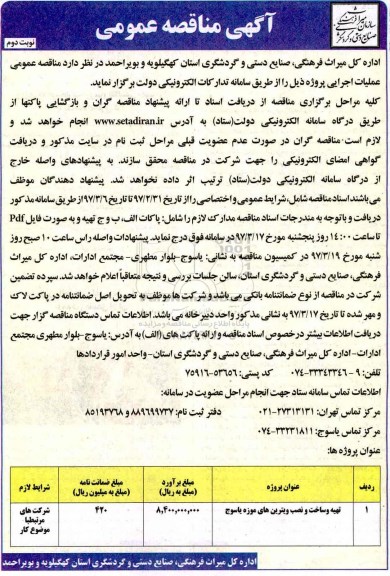 آگهی مناقصه عمومی
نوبت دوم
اداره کل میراث فرهنگی، صنایع دستی و گردشگری استان کهگیلویه و بویراحمد در نظر دارد مناقصه عمومی
عملیات اجرایی پروژه ذیل را از طریق سامانه تدارکات الکترونیکی دولت برگزار نماید.
کلیه مراحل برگزاری مناقصه از دریافت اسناد تا ارائه پیشنهاد مناقصه گران و بازگشایی پاکتها از
طریق درگاه سامانه الکترونیکی دولت(ستاد) به آدرس www.setadiran.ir انجام خواهد شد و
لازم است مناقصه گران در صورت عدم عضویت قبلی مراحل ثبت نام در سایت مذکور و دریافت
گواهی امضای الکترونیکی را جهت شرکت در مناقصه محقق سازند. به پیشنهادهای واصله خارج
از درگاه سامانه الکترونیکی دولت(ستاد) ترتیب اثر داده نخواهد شد. پیشنهاد دهندگان موظف
می باشند اسناد مناقصه شامل، شرایط عمومی و اختصاصی را از تاریخ ۹۷/۲/۳۱ تا تاریخ ۹۷/۳/۶ از طریق سامانه مذکور
دریافت و با توجه به مندرجات اسناد مناقصه مدارک لازم را شامل: پاکات الف، ب و ج تهیه و به صورت فایل Pdf
تا ساعت ۱۴:۰۰ روز پنجشنبه مورخ ۹۷/۳/۱۷ در سامانه فوق درج نماید. پیشنهادات واصله راس ساعت ۱۰ صبح روز
شنبه مورخ ۹۷/۳/۱۹ در کمیسیون مناقصه به نشانی: یاسوج-بلوار مطهری- مجتمع ادارات، اداره کل میراث
فرهنگی، صنایع دستی و گردشگری استان، سالن جلسات بررسی و نتیجه متعاقباً اعلام خواهد شد. سپرده تضمین
شرکت در مناقصه از نوع ضمانتنامه بانکی می باشد و شرکت ها موظف به تحویل اصل ضمانتنامه در پاکت لاک
و مهر شده تا تاریخ ۹۷/۳/۱۷ به نشانی مذکور واحد دبیرخانه می باشد. اطلاعات تماس دستگاه مناقصه گزار جهت
دریافت اطلاعات بیشتر در خصوص اسناد مناقصه و ارائه پاکت های (الف) به آدرس: یاسوج-بلوار مطهری مجتمع
ادارات-اداره کل میراث فرهنگی، صنایع دستی و گردشگری استان- واحد امور قراردادها
تلفن: ۹ - ۳۳۳۴۳۳۴۶-۰۷۴ کد پستی: ۵۳۶۵۶-۷۵۹۱۶
اطلاعات تماس سامانه ستاد جهت انجام مراحل عضویت در سامانه:
مرکز تماس تهران: ۲۷۳۱۳۱۳۱-۰۲۱ دفتر ثبت نام: ۸۸۹۶۹۷۳۷ و ۸۵۱۹۳۷۶۸
مرکز تماس یاسوج: ۳۳۲۳۱۸۱۱-۰۷۴
عنوان پروژه ها:
ردیف عنوان پروژه مبلغ برآورد (مبلغ به ریال) مبلغ ضمانت نامه (مبلغ به میلیون ریال) شرایط لازم
۱ تهیه وساخت و نصب ویترین های موزه یاسوج ۸,۴۰۰,۰۰۰,۰۰۰ ۴۲۰ شرکت های مرتبطبا موضوع کار
اداره کل میراث فرهنگی، صنایع دستی و گردشگری استان کهگیلویه و بویراحمد